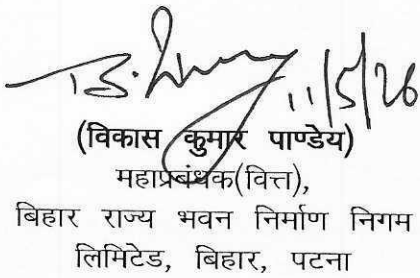 11/5/26
(विकास कुमार पाण्डेय)
महाप्रबंधक(वित्त),
बिहार राज्य भवन निर्माण निगम
लिमिटेड, बिहार, पटना